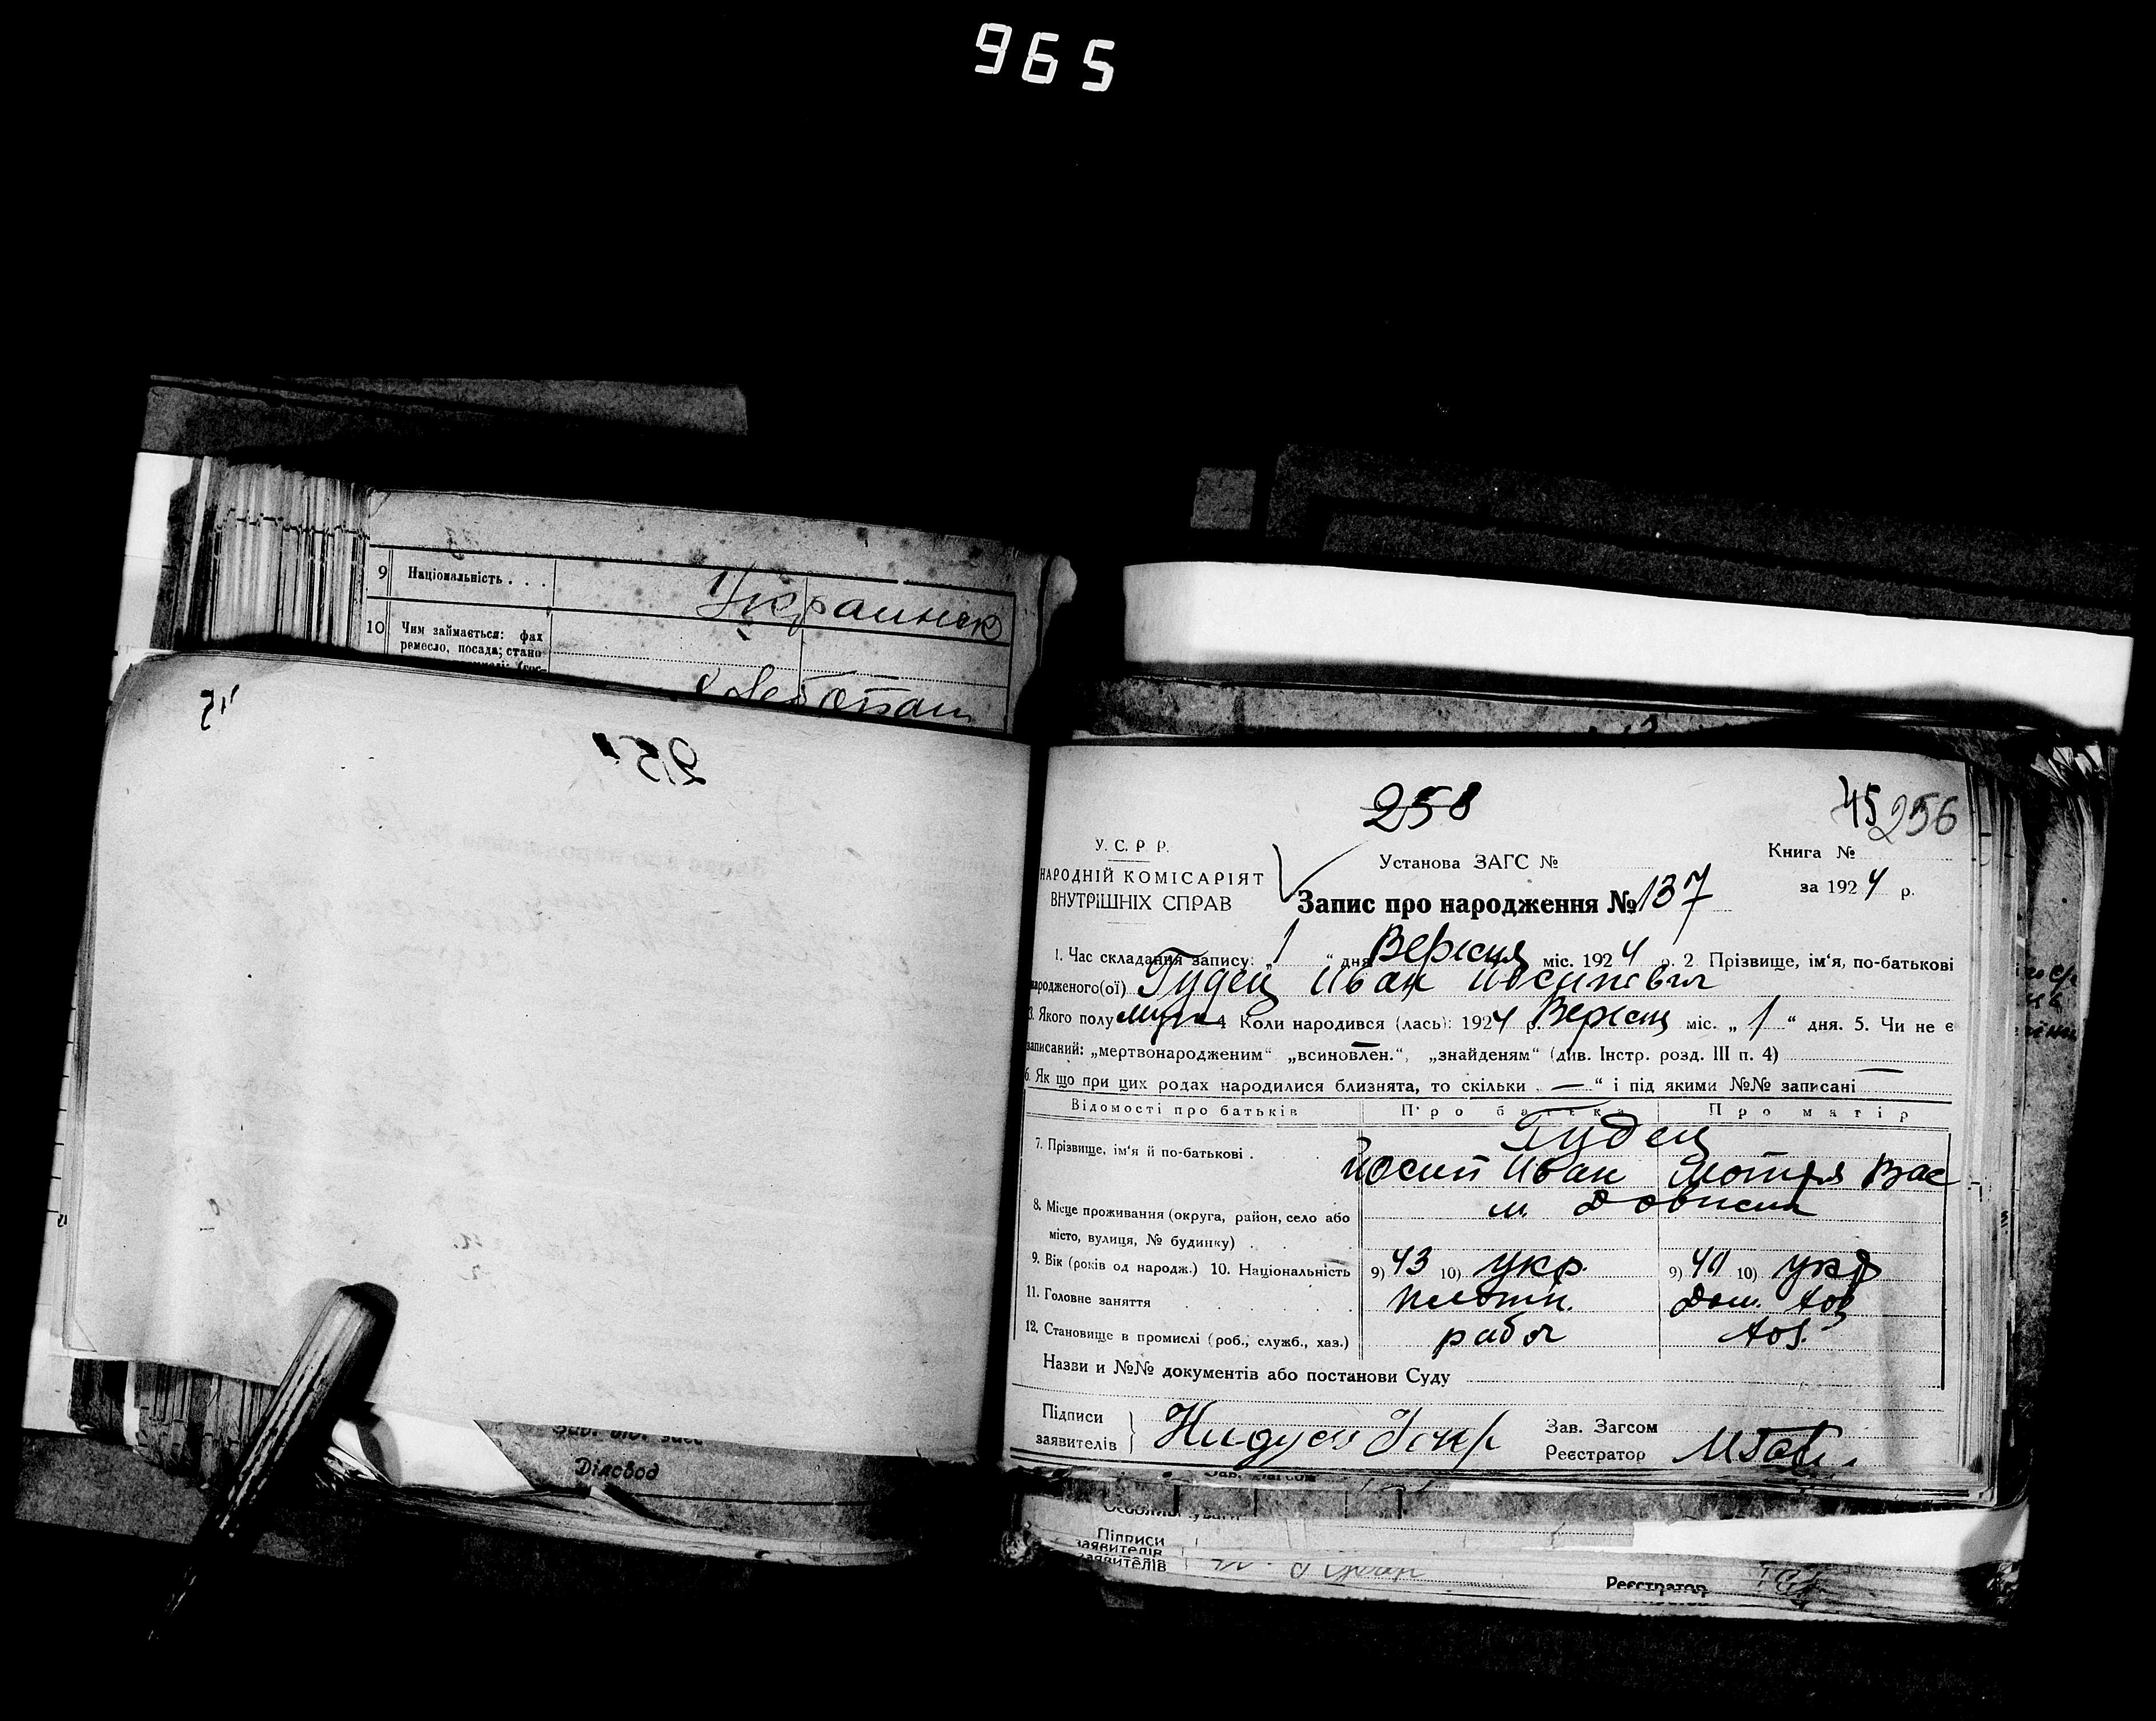 965
9 Національність . . . Украинск
10 Чим займається: фах
ремесло, посада; стано
258
45 256
У. С. Р Р.
НАРОДНІЙ КОМІСАРІЯТ
ВНУТРІШНІХ СПРАВ
Установа ЗАГС №
Книга №
за 1924 р.
Запис про народження № 137
1. Час складання запису: „1“ дня Вересня міс. 1924 р. 2 Прізвище, ім‘я, по-батькові
народженого(ої) Гудец Иван Иосипович
3. Якого полу муж 4 Коли народився (лась): 1924 р. Вересня міс. „1“ дня. 5. Чи не є
записаний: „мертвонародженим“ „всиновлен.“, „знайденям“ (див. Інстр. розд. III п. 4)
6. Як що при цих родах народилися близнята, то скільки „—“ і під якими №№ записані —
Відомості про батьків Про батька Про матір
Гудец
7. Прізвище, ім‘я й по-батькові . Йосип Иван Мотря Вас
8. Місце проживання (округа, район, село або м. Довбиш
місто, вулиця, № будинку)
9. Вік (років од народж.) 10. Національність 9) 43 10) укр. 9) 40 10) укр
11. Головне заняття плотн. дом. хоз
12. Становище в промислі (роб., служб., хаз.) рабоч хоз.
Назви и №№ документів або постанови Суду
Підписи
заявителів
Зав. Загсом
Реєстратор
Діловод
Підписи
заявителів
заявителів
Реєстратор